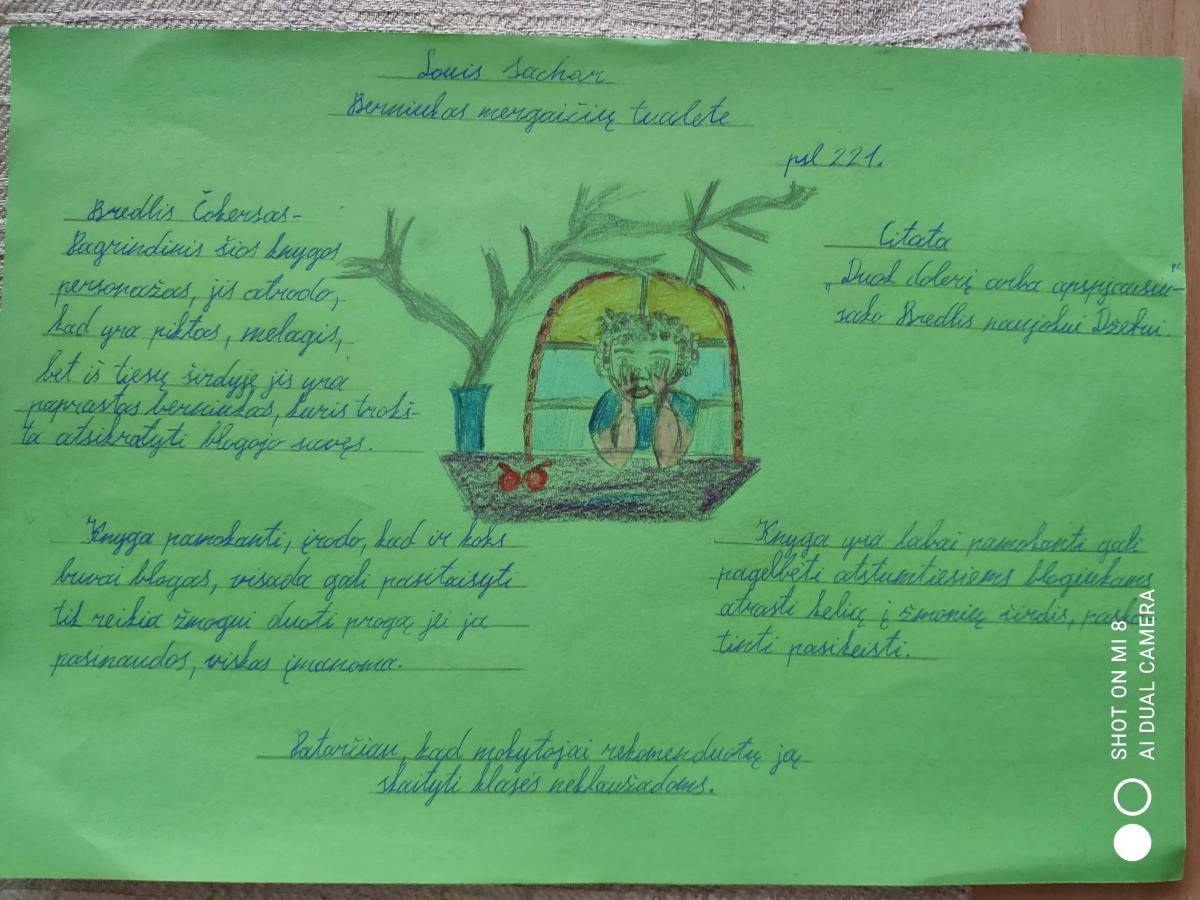 Louis Sachar
Berniukas mergaičių tualete
psl 221.
Bredlis Čokersas-
Pagrindinis šios knygos
personažas, jis atrodo,
kad yra piktas, melagis,
bet iš tiesų širdyje jis yra
paprastas berniukas, kuris trokš-
ta atsikratyti blogojo savęs.
Citata
„Duok dolerį arba apspjausiu"-
sako Bredlis naujokui Džefui
Knyga pamokanti, įrodo, kad ir koks
buvai blogas, visada gali pasitaisyti
tik reikia žmogui duoti progą jei ja
pasinaudos, viskas įmanoma.
Knyga yra labai pamokanti gali
pagelbėti atstumtiesiems blogiukams
atrasti kelią į žmonių širdis, paska-
tinti pasikeisti.
Patarčiau, kad mokytojai rekomenduotų ją
skaityti klasės neklaužadoms.
SHOT ON MI 8
AI DUAL CAMERA